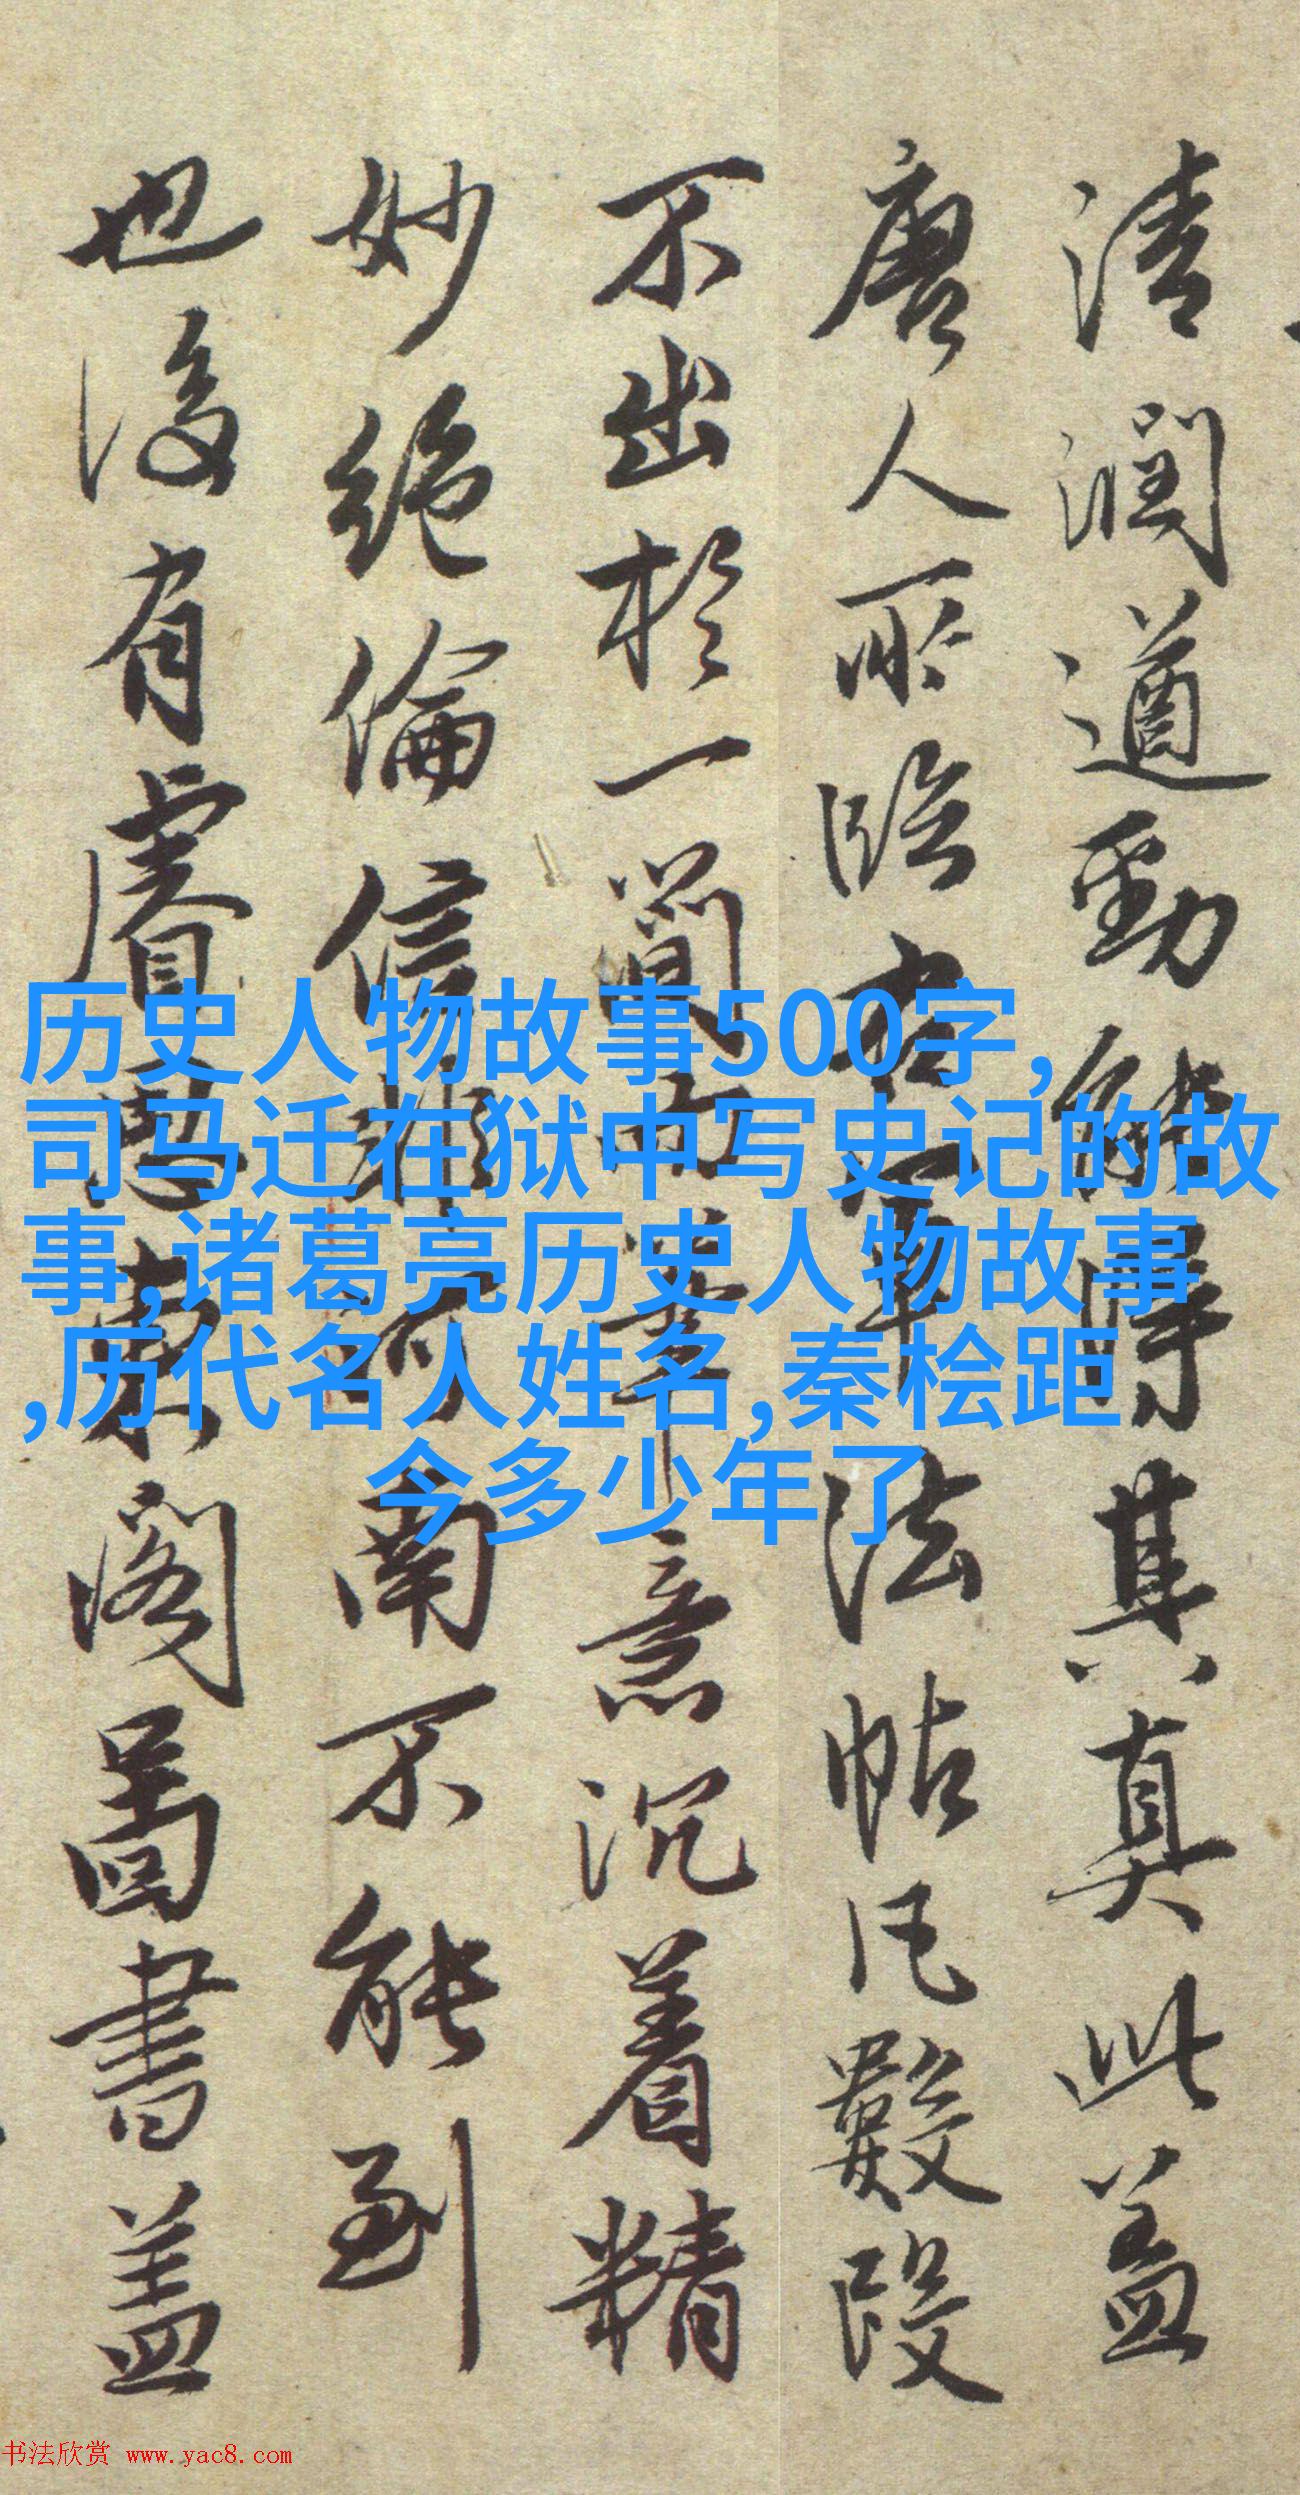 清潤遒勁能得其真真此盖
唐人所臨右軍法帖凡數段
不出於一簡而筆意沉着精
妙絶倫信河南不能到
也後有睿思東閣圖書盖
历史人物故事500字,
司马迁在狱中写史记的故
事,诸葛亮历史人物故事
,历代名人姓名,秦桧距
今多少年了
书法欣赏 www.yac8.com